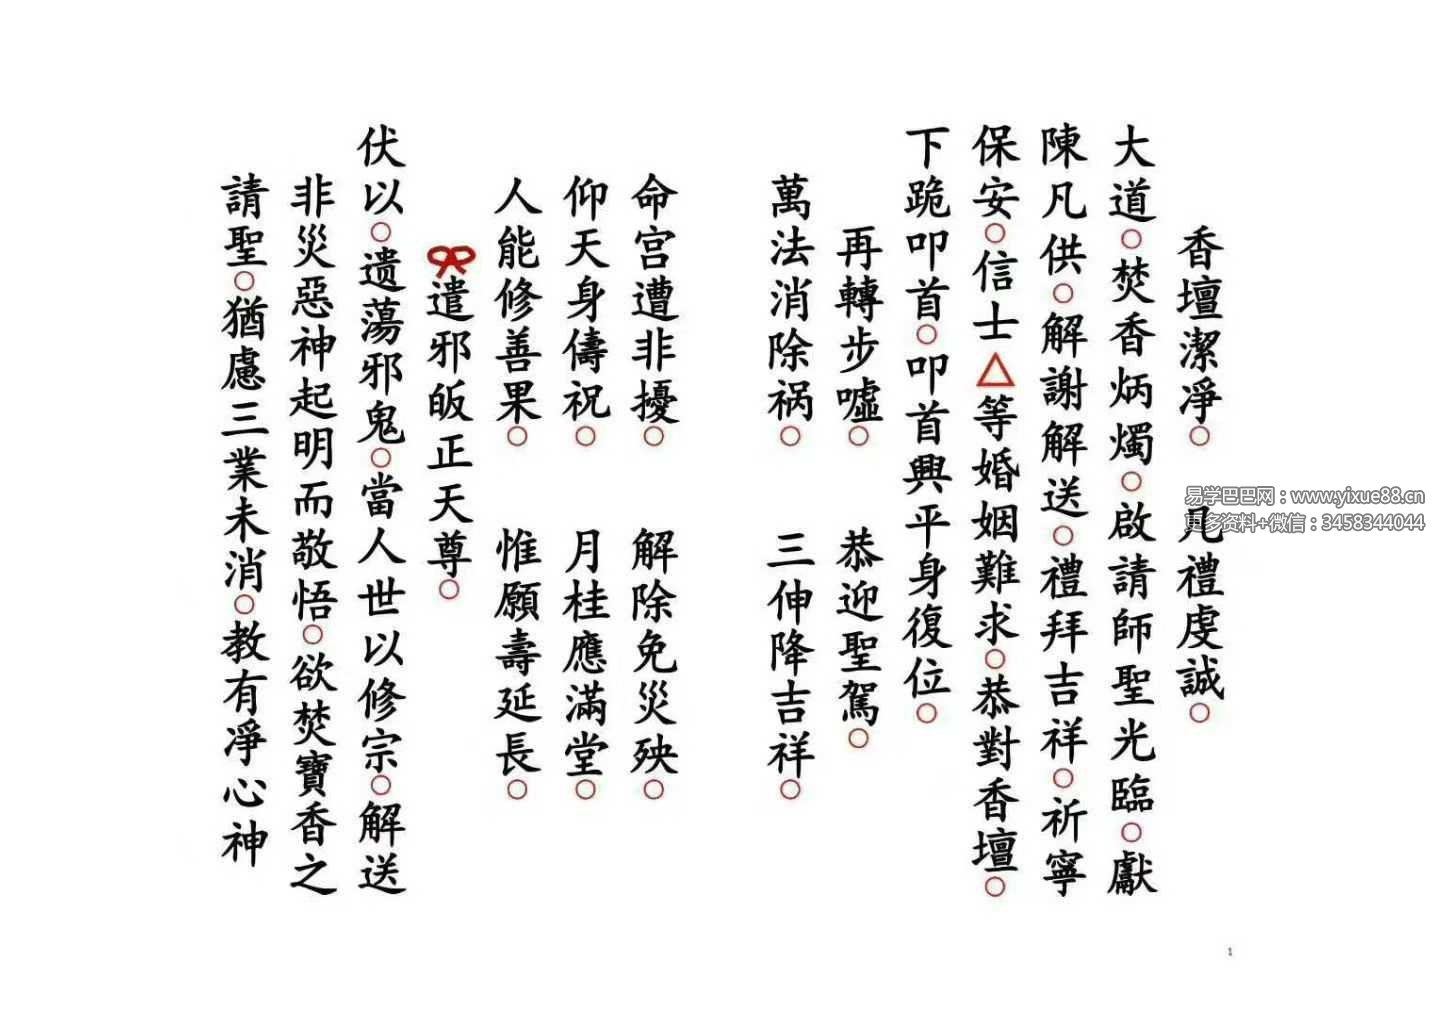 香壇潔凈○　凡禮虔誠○
大道○焚香炳燭○啟請師聖光臨○獻
陳凡供○解謝解送○禮拜吉祥○祈寧
保安○信士△等婚姻難求○恭對香壇○
下跪叩首○叩首興平身復位○
再轉步噓○　恭迎聖駕○
萬法消除祸○　三伸降吉祥○
命宫遭非擾○　解除免災殃○
仰天身儔祝○　月桂應滿堂○
人能修善果○　惟願壽延長○
遣邪皈正天尊○
伏以○遗蕩邪鬼○當人世以修宗○解送
非災惡神起明而敬悟○欲焚寶香之
請聖○猶慮三業未消○教有凈心神
易学巴巴网：www.yixue88.cn
更多资料+微信：3458344044
1